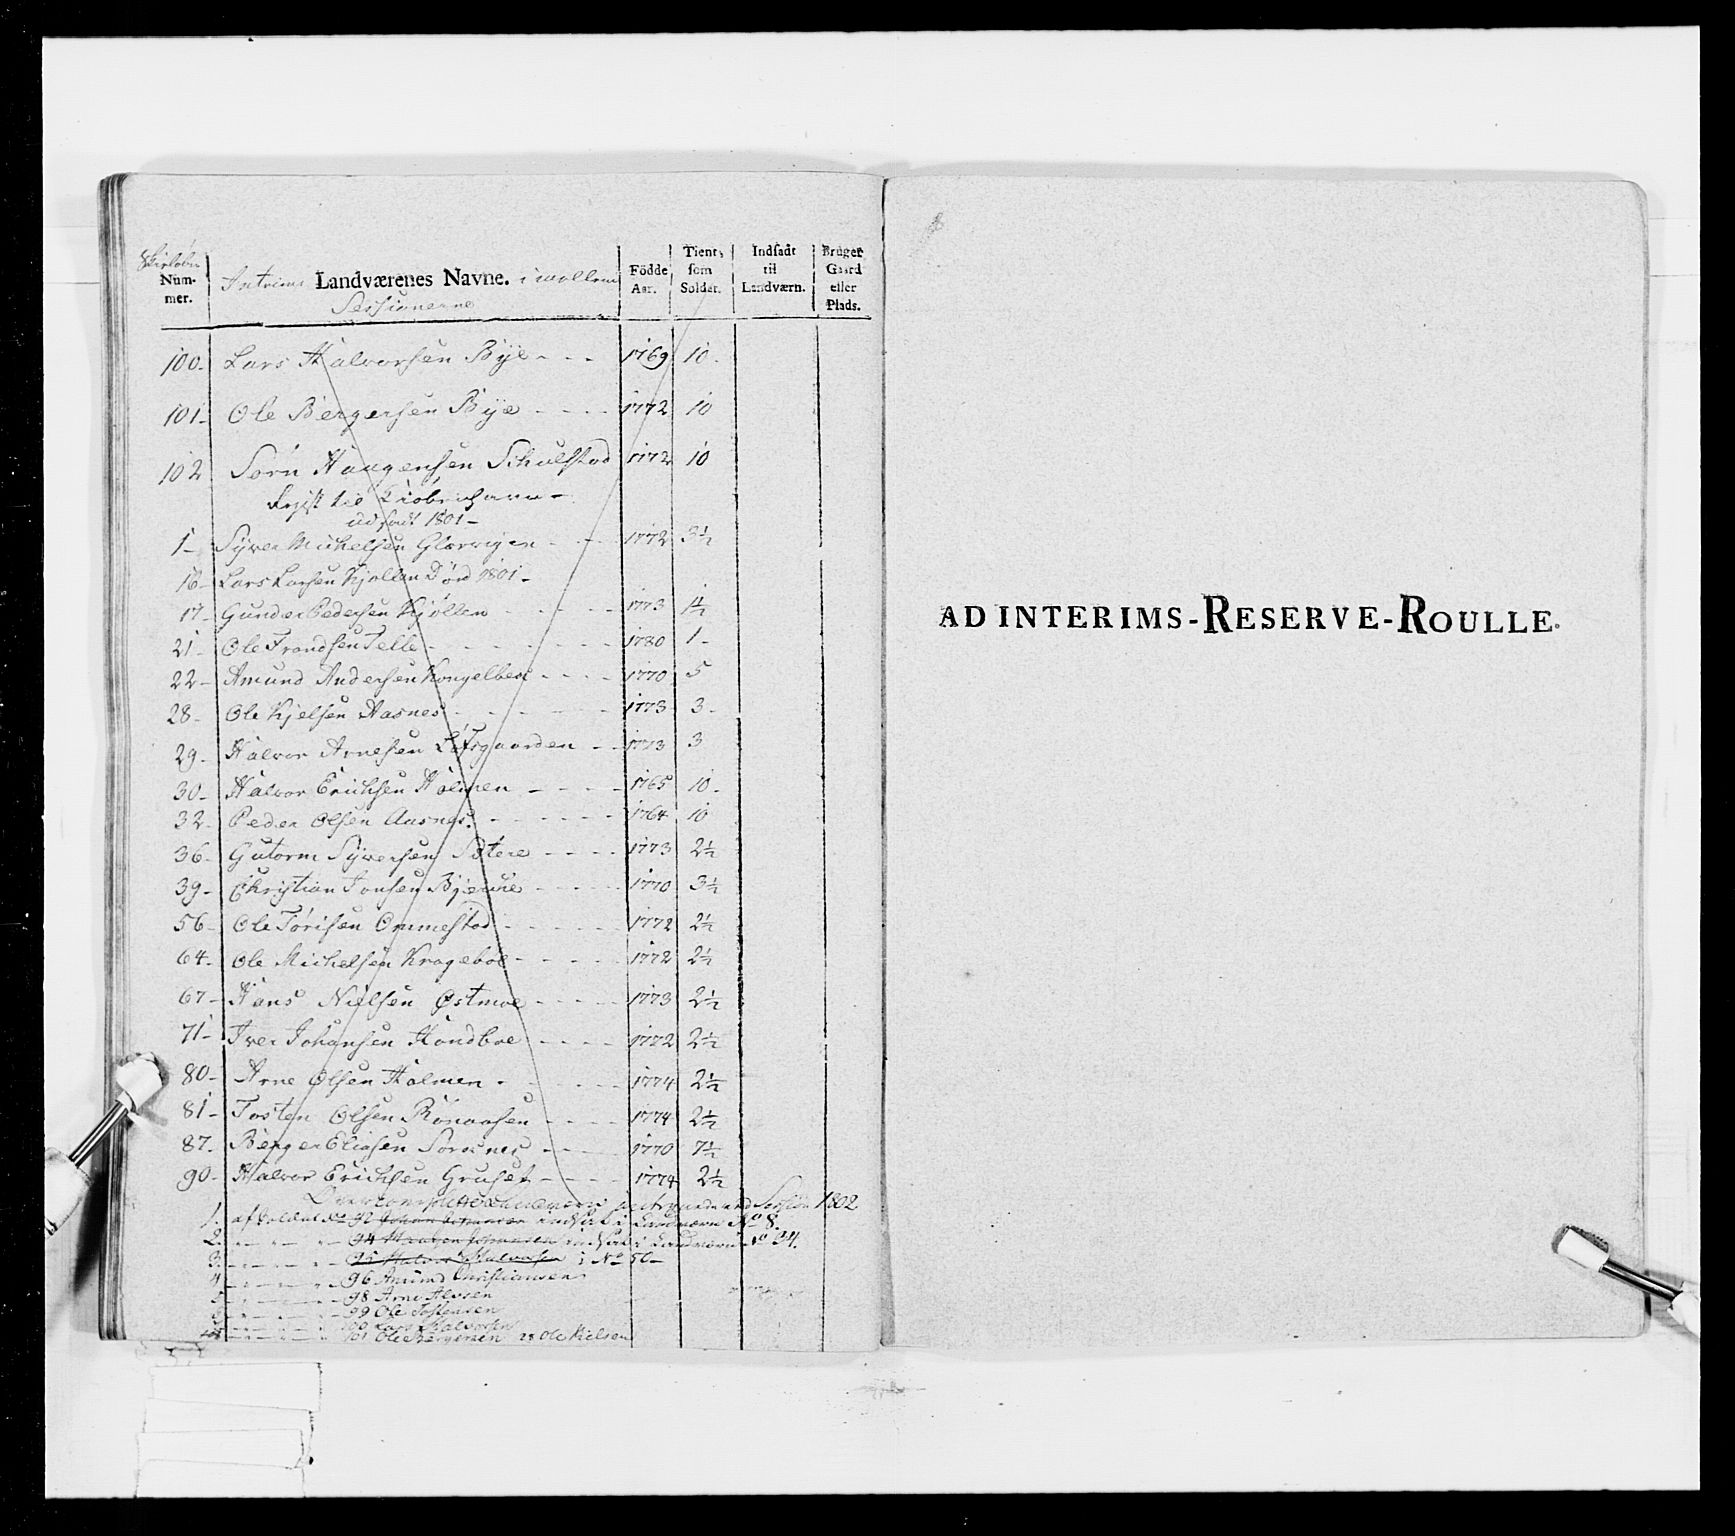 Skieløber
Num-
mer.
Intrims Landværenes Navne. imellem
Sessionerne
Födde
Aar.
Tient
som
Soldat.
Indsadt
til
Landværn.
Bruger
Gaard
eller
Plads.
100- Lars Halvorsen Bye - - - 1769 10-
101- Ole Bergersen Bye - - - - 1772 10
102 Sørn Haagensen Schulstad 1772 10
Rejst til Kiøbenhavn -
udsadt 1801-
1- Syver Michelsen Glorvigen - - - 1772 3½
16- Lars Larsen Kjøllen Død 1801-
17- Gunder Pedersen Kjøllen - - - - 1773 1½
21- Ole Trondsen Telle - - - - - - 1780 1-
22- Amund Andersen Kongelben - - - - 1770 5
28- Ole Kjelsen Aasnes - - - - - 1773 3-
29- Halvor Arnesen Løfsgaarden - - 1773 3
30- Halvor Erichsen Holmen - - - - 1765 10-
32- Peder Olsen Aasnes - - - - - - 1764 10
36- Gutorm Syversen Sætere - - - - 1773 2½
39- Christian Jonsen Bjercke - - - - - 1770 3½
56- Ole Torisen Ommestad - - - - - 1772 2½
64- Ole Michelsen Krageboe - - - - - 1772 2½
67- Hans Nielsen Østmoe - - - - - 1773 2½
71- Iver Johansen Hondboe - - - - 1772 2½
80- Arne Olsen Holmen - - - - - - 1774 2½
81- Tosten Olsen Rønaasen - - - - 1774 2½
87. Berger Eliasen Sørsnes - - - - 1770 7½
90- Halvor Erichsen Gruset - - - - 1774 2½
Overcomplette ved Session 1802
1. af Rollens No 92 indsat i Landværn No 8.
2. - - - - 94 indsat i Landværn No 34.
3. - - - - 95 Halvor Halvorsen i No 50-
4 - - - - 96 Amund Christiansen
5 - - - - 98 Arne Alvsen
6 - - - - 99 Ole Tostensen
- - - - 100 Lars Halvorsen
- - - - 101 Ole Bergersen 28 Ole Kielsen
AD INTERIMS-RESERVE-ROULLE.